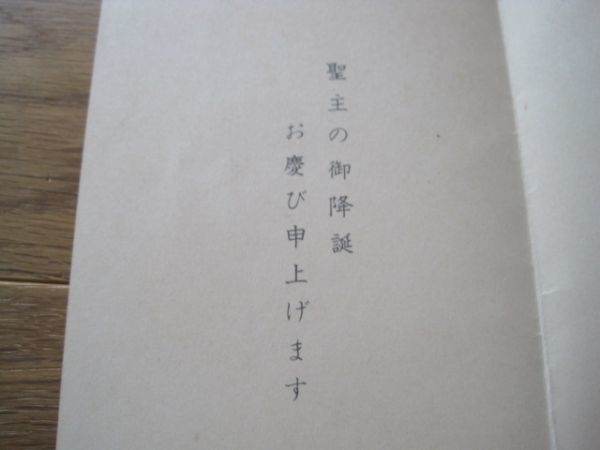 聖主の御降誕
お慶び申上げます